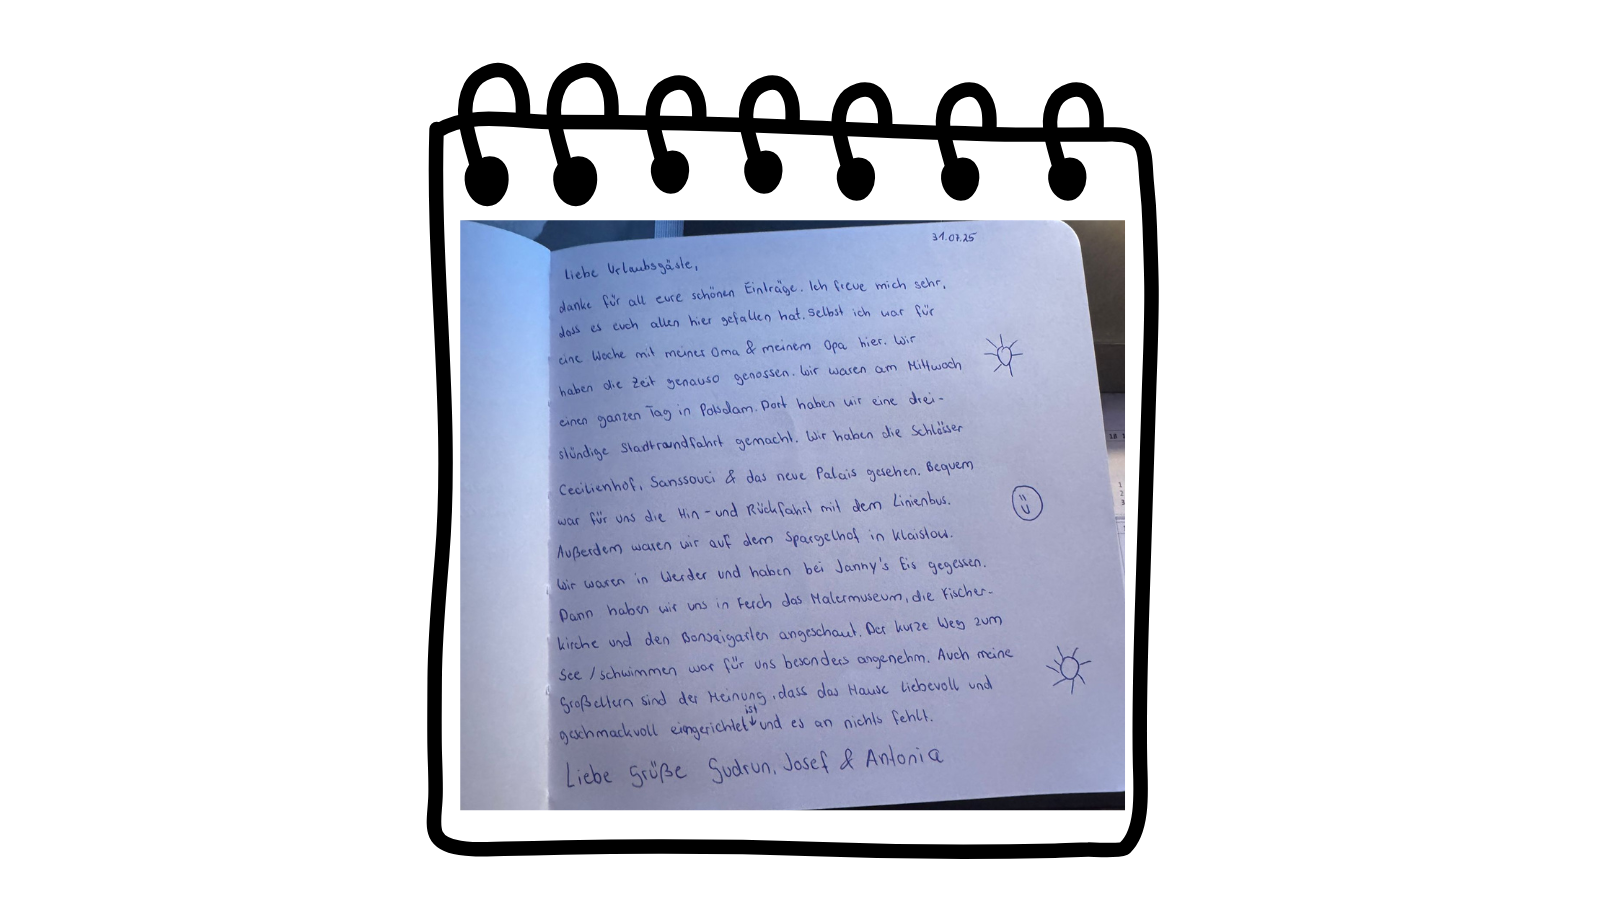 31.07.25
Liebe Urlaubsgäste,
danke für all eure schönen Einträge. Ich freue mich sehr,
dass es euch allen hier gefallen hat. Selbst ich war für
eine Woche mit meiner Oma & meinem Opa hier. Wir
haben die Zeit genauso genossen. Wir waren am Mittwoch
einen ganzen Tag in Potsdam. Dort haben wir eine drei-
stündige Stadtrundfahrt gemacht. Wir haben die Schlösser
Cecilienhof, Sanssouci & das neue Palais gesehen. Bequem
war für uns die Hin- und Rückfahrt mit dem Linienbus.
Außerdem waren wir auf dem Spargelhof in Klaistow.
Wir waren in Werder und haben bei Janny's Eis gegessen.
Dann haben wir uns in Ferch das Malermuseum, die Fischer-
kirche und den Bonsaigarten angeschaut. Der kurze Weg zum
See / schwimmen war für uns besonders angenehm. Auch meine
Großeltern sind der Meinung, dass das Hause liebevoll und
ist
geschmackvoll eingerichtet und es an nichts fehlt.
Liebe Grüße Gudrun, Josef & Antonia
18 1
1
2
3